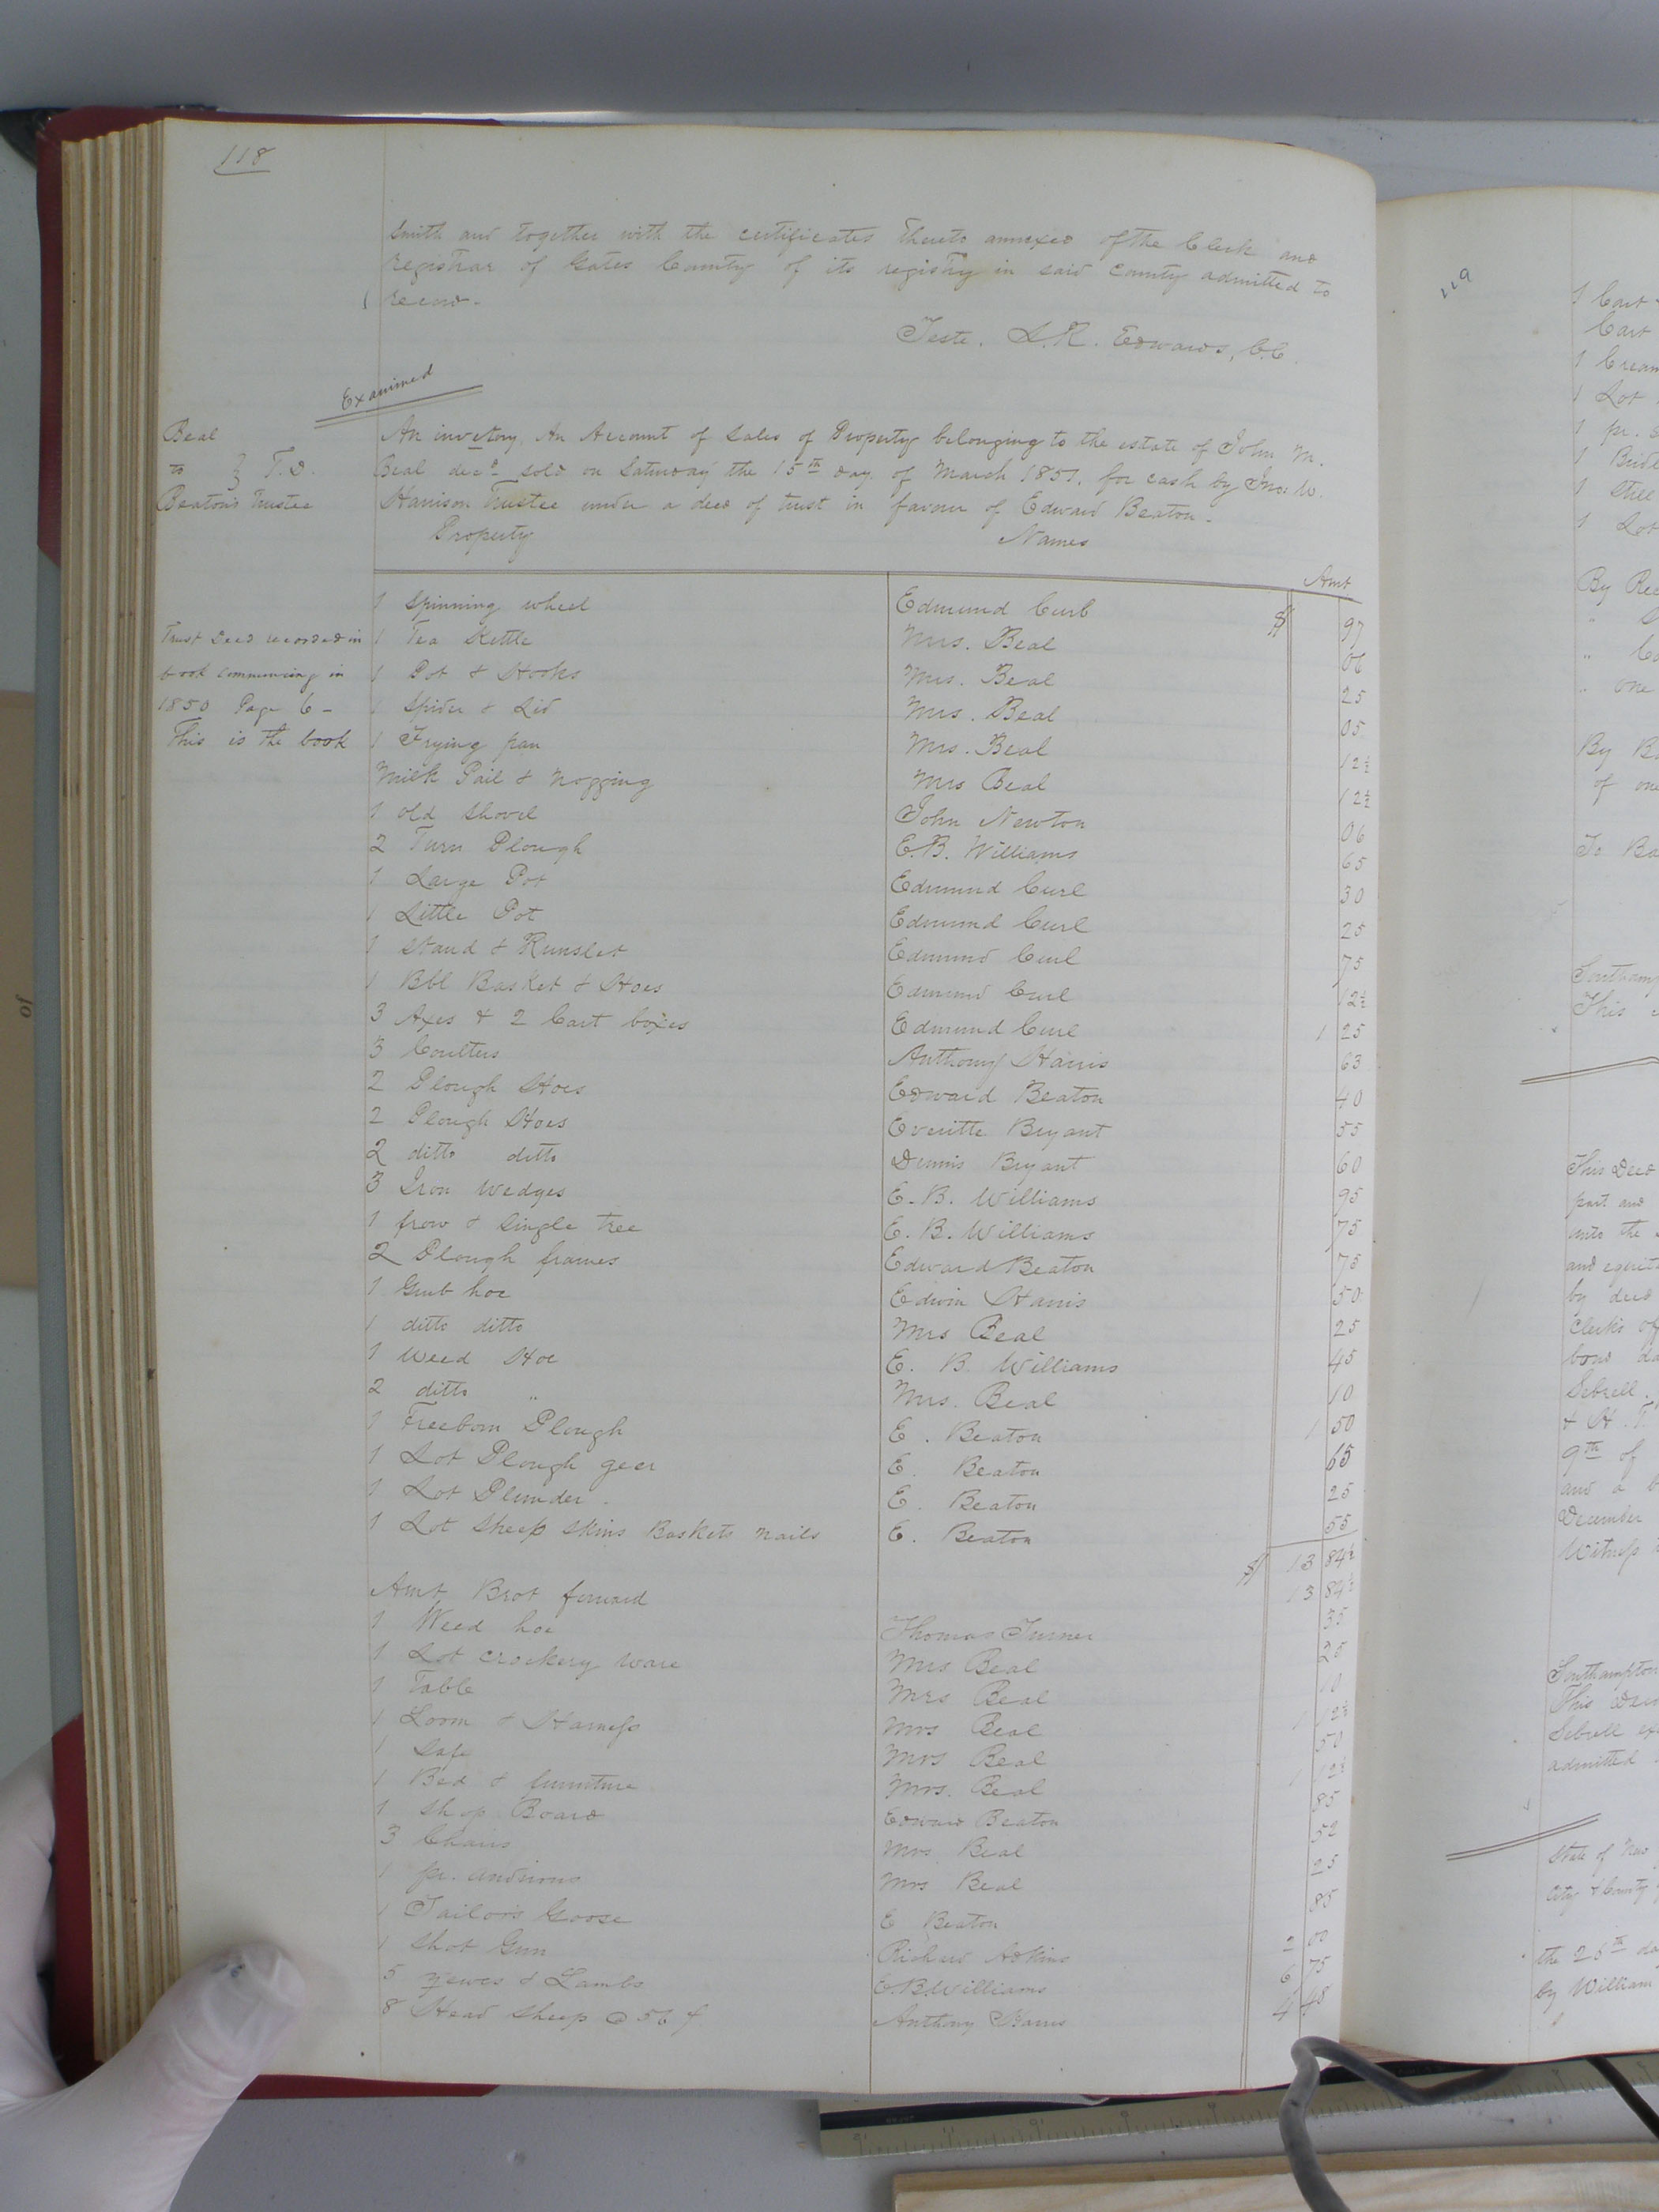 118
Smith and together with the certificates thereto annexed of the Clerk and
registrar of Gates County of its registry in said County admitted to
record.
Teste. L.R. Edwards, C.C.
Examined
Beal
to } T.D.
Beaton's Trustee
An invetory An Account of Sales of Property belonging to the estate of John M.
Beal decd sold on Saturday the 15th day of March 1851. for cash by Jno. W.
Harrison Trustee under a deed of trust in favour of Edward Beaton.
Property Names Amt
Trust Deed recorded in
book commencing in
1850 Page 6 -
This is the book
1 Spinning wheel Edmund Curl $ 97
1 Tea Kettle Mrs. Beal 06
1 Pot & Hooks Mrs. Beal 25
1 Spider & Lid Mrs. Beal 05
1 Frying pan Mrs. Beal 12½
Milk Pail & Nogging Mrs Beal 12½
1 old Shovel John Newton 06
2 Turn Plough E.B. Williams 65
1 Large Pot Edmund Curl 30
1 Little Pot Edmund Curl 25
1 Stand & Runslet Edmund Curl 75
1 Bbl Basket & Hoes Edmund Curl 12½
3 Axes & 2 Cart boxes Edmund Curl 1 25
3 Coulters Anthony Harris 63
2 Plough Hoes Edward Beaton 40
2 Plough Hoes Everitte Bryant 55
2 ditto ditto Dennis Bryant 60
3 Iron Wedges E.B. Williams 95
1 frow & Single tree E.B. Williams 75
2 Plough frames Edward Beaton 75
1 Grub hoe Edwin Harris 50
1 ditto ditto Mrs Beal 25
1 Weed Hoe E. B. Williams 45
2 ditto " Mrs. Beal 10
1 Freeborn Plough E. Beaton 1 50
1 Lot Plough geer E. Beaton 65
1 Lot Plunder. E. Beaton 25
1 Lot Sheep Skins Baskets nails E. Beaton 55
$ 13 84½
Amt Brot forward 13 84½
1 Weed hoe Thomas Turner 35
1 Lot crockery ware Mrs Beal 25
1 Table Mrs Beal 10
1 Loom & Harness Mrs Beal 1 12½
1 Safe Mrs Beal 50
1 Bed & furniture Mrs. Beal 1 12½
1 Shop Board Edward Beaton 85
3 Chairs Mrs. Beal 52
1 pr. andirons Mrs Beal 25
1 Tailors Goose E Beaton 85
1 Shot Gun Richard Adkins 2 00
5 yewes & Lambs E.B. Williams 6 75
8 Head Sheep @ 56 ¢ Anthony Harris 4 48
119
1 Cart
Cart
1 Cream
1 Lot
1 pr.
1 Bridle
1 Still
1 Lot
By Rec
By Ba
of one
To Ba
Southamp
This
This Deed
part and
unto the
and equit
by deed
Clerks of
bond da
Sebrell.
& H. T.
9th of
and a
December
Witness
Southampton
This Deed
Sebrell
admitted
State of New
City & County
the 25th da
by William
of